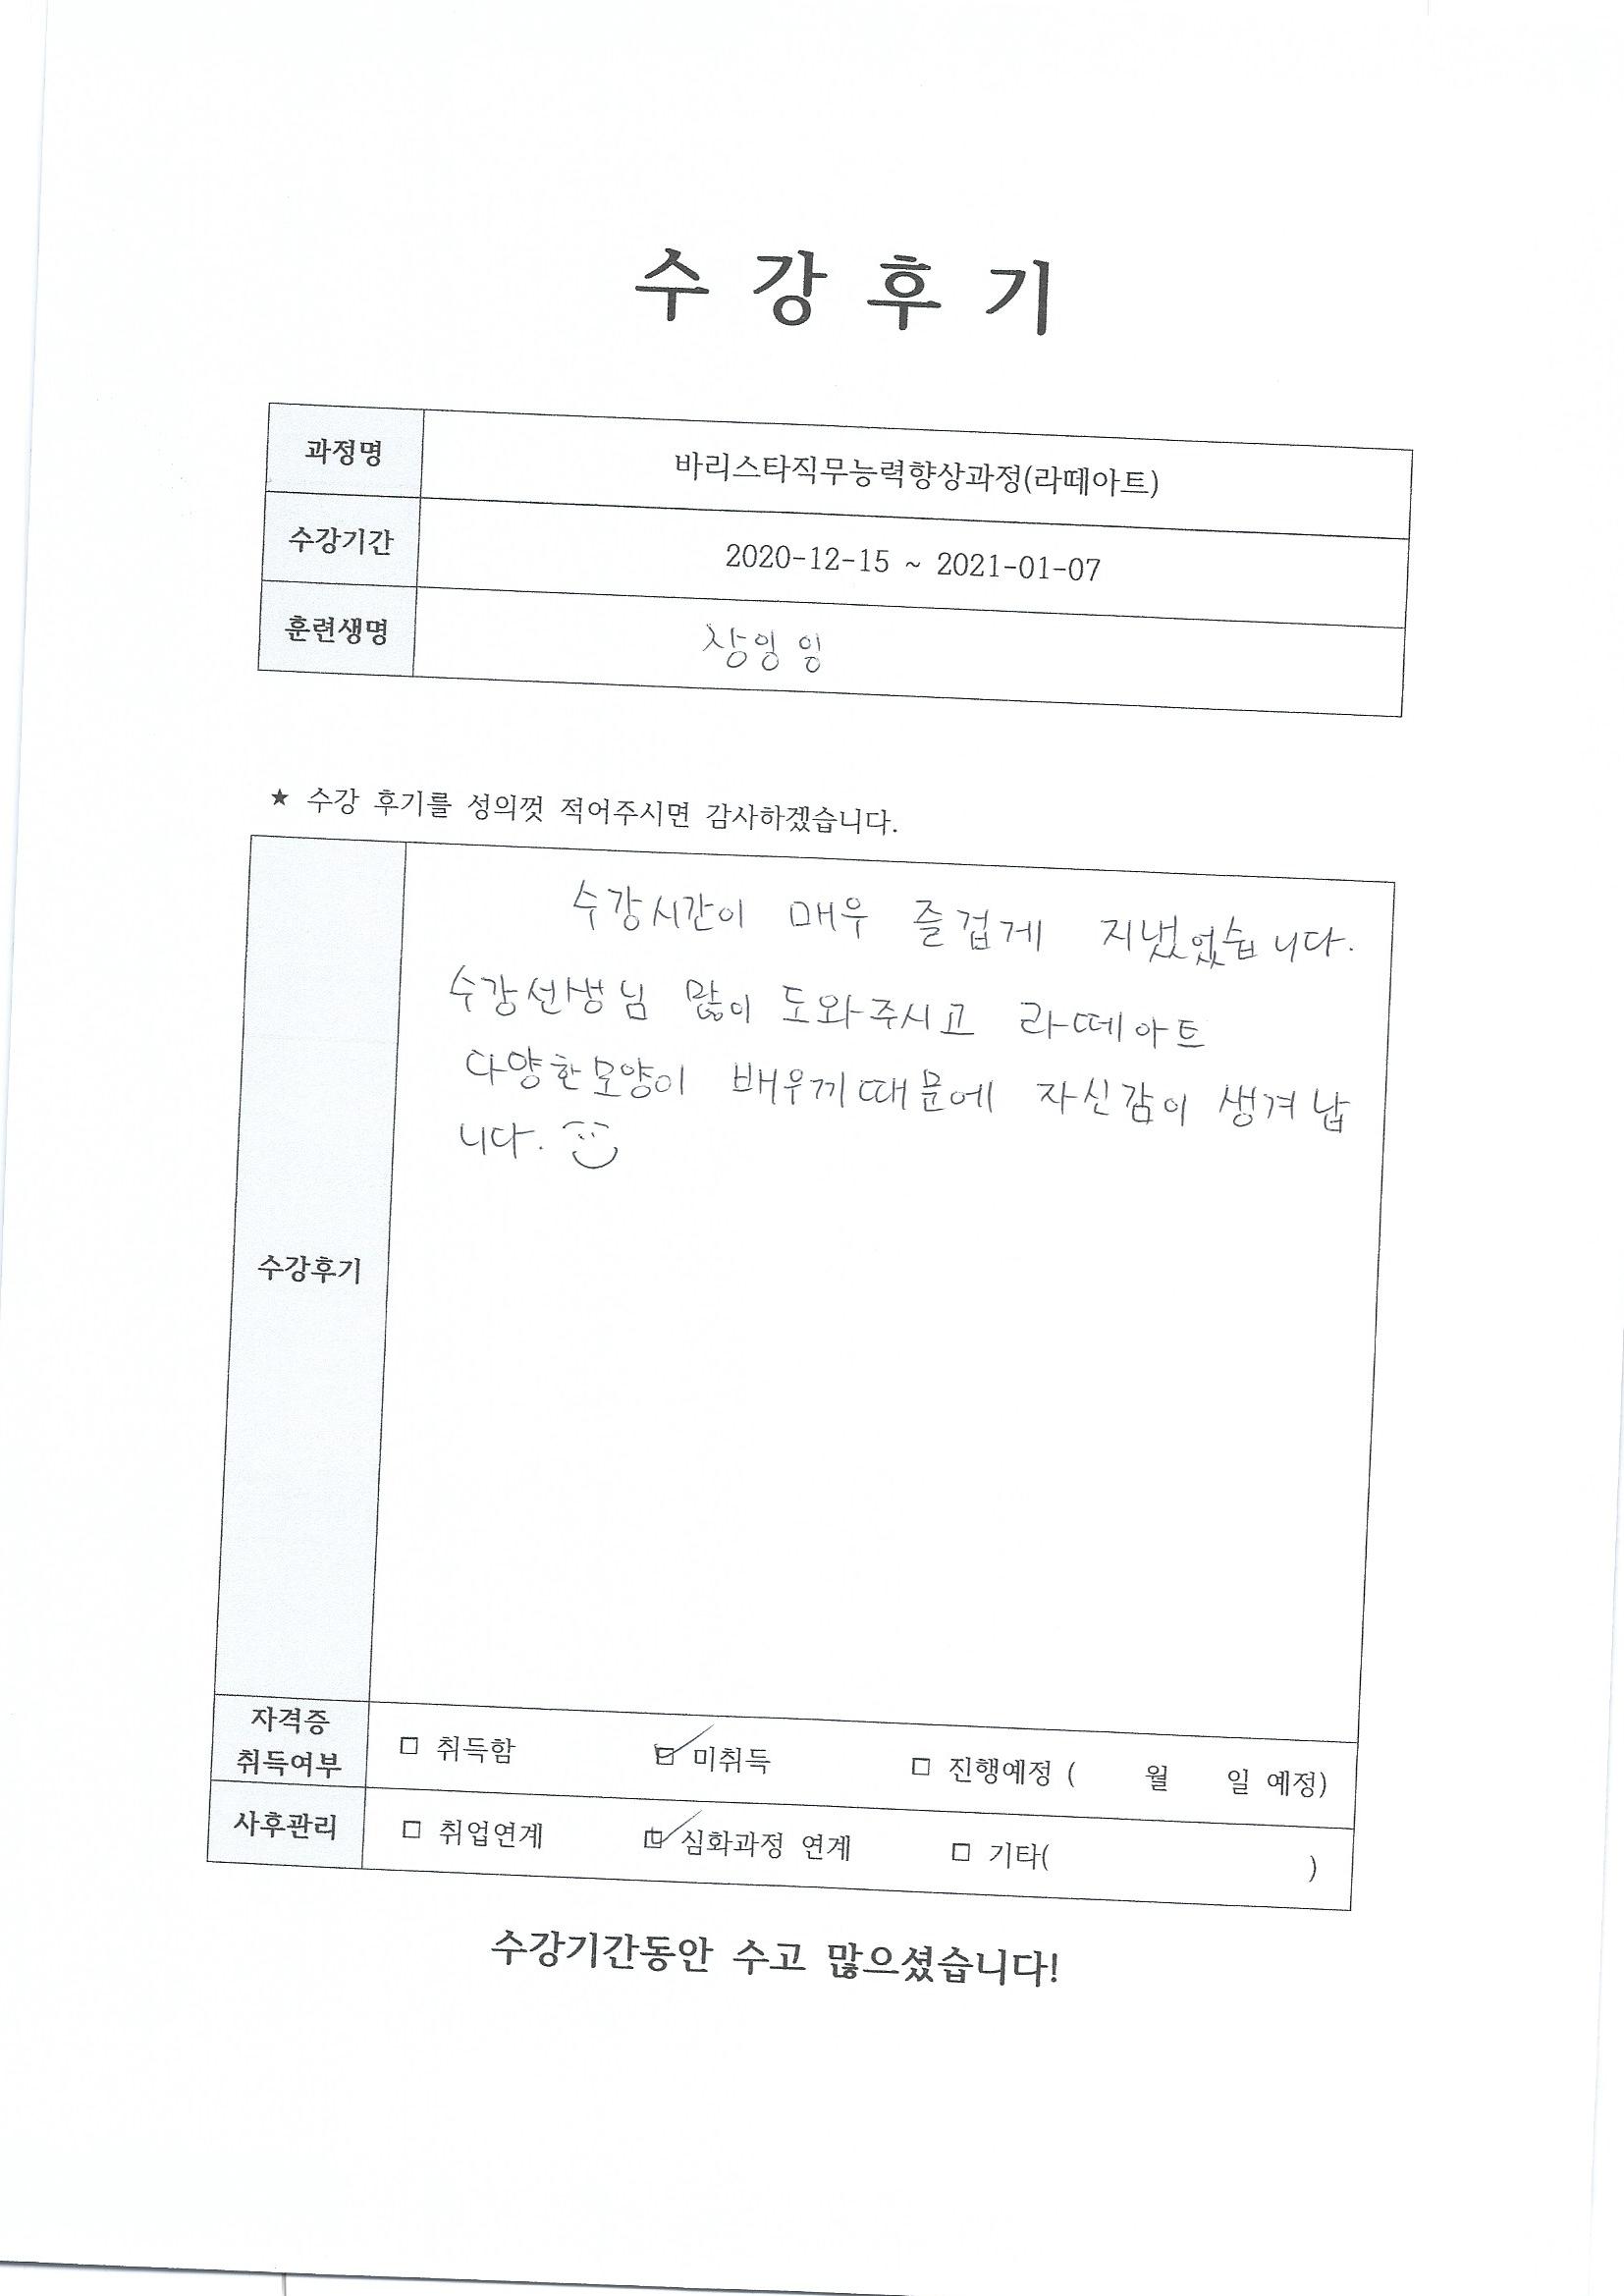 수 강 후 기
과정명 바리스타직무능력향상과정(라떼아트)
수강기간 2020-12-15 ~ 2021-01-07
훈련생명
★ 수강 후기를 성의껏 적어주시면 감사하겠습니다.
수강시간이 매우 즐겁게 지냈었습니다.
수강선생님 많이 도와주시고 라떼아트
다양한모양이 배우끼때문에 자신감이 생겨납
니다.
수강후기
자격증
취득여부
□ 취득함 ☑ 미취득 □ 진행예정 ( 월 일 예정)
사후관리 □ 취업연계 ☑ 심화과정 연계 □ 기타( )
수강기간동안 수고 많으셨습니다!